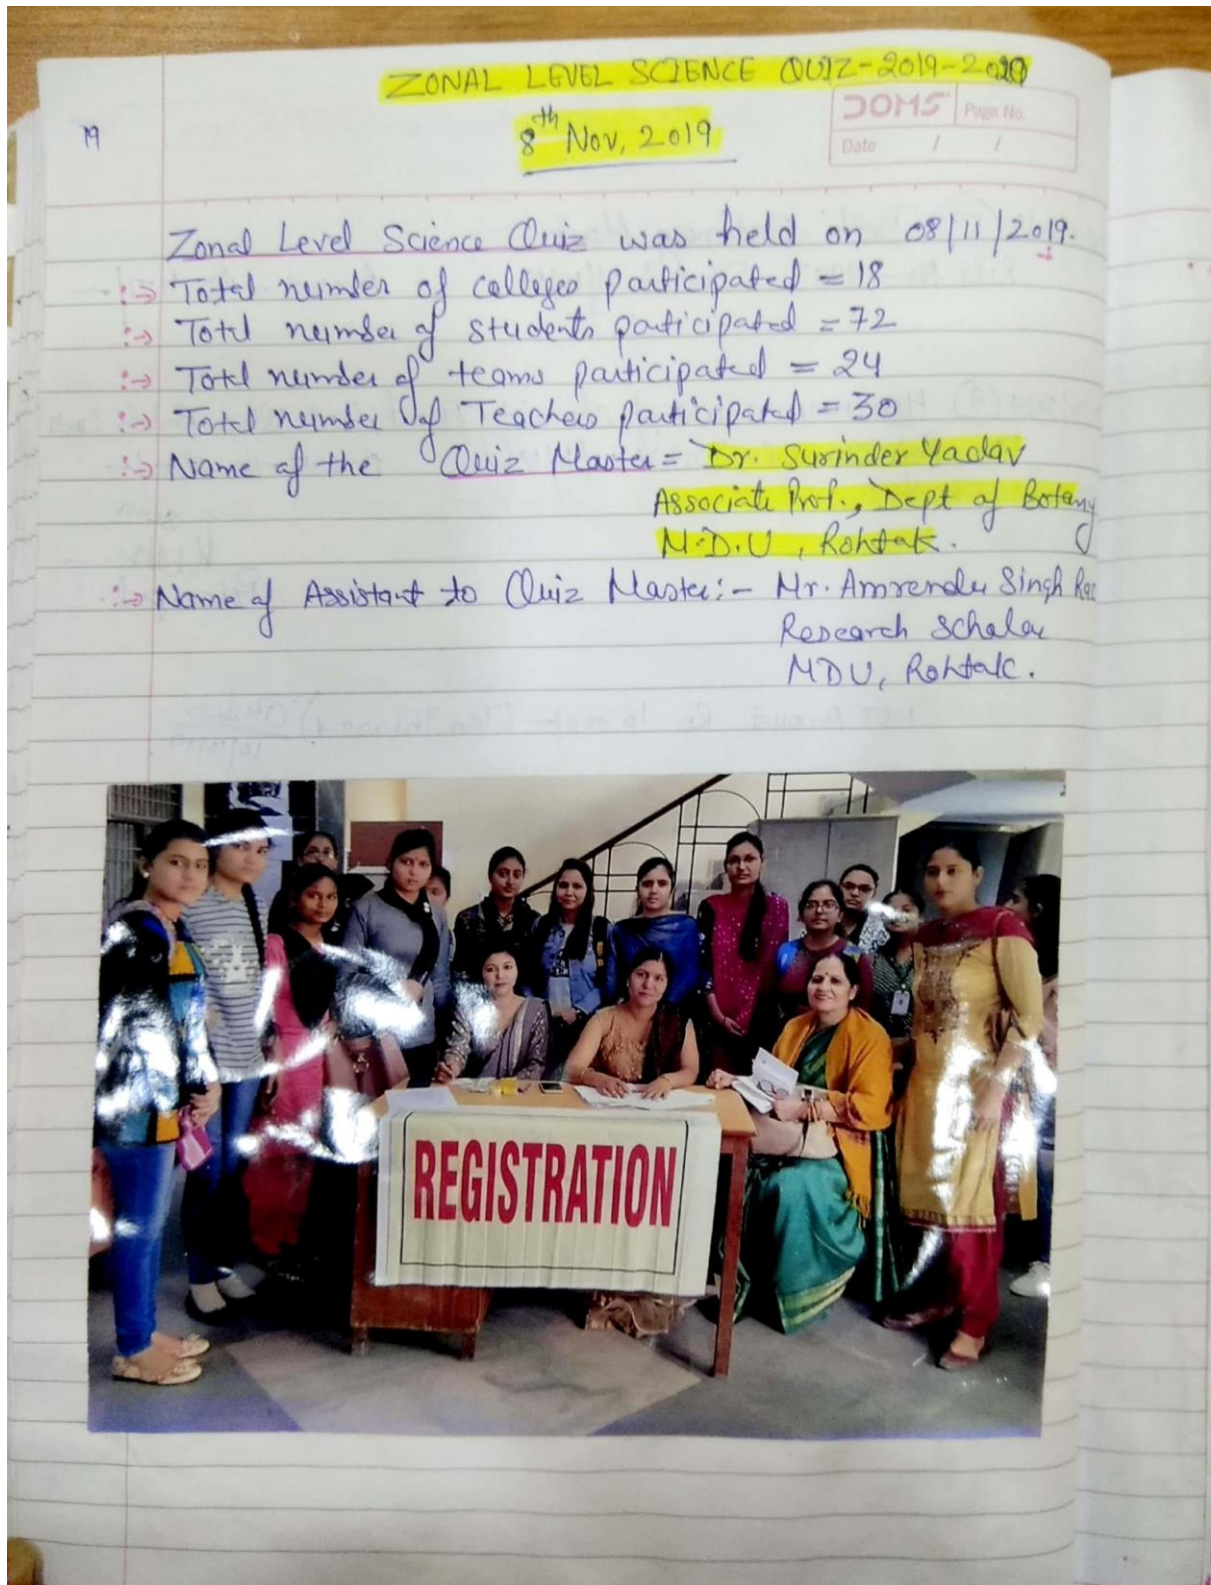 ZONAL LEVEL SCIENCE QUIZ-2019-2020
8th Nov, 2019
DOMS Page No.
Date / /
19
Zonal Level Science Quiz was held on 08/11/2019.
:→ Total number of colleges participated = 18
:→ Total number of students participated = 72
:→ Total number of teams participated = 24
:→ Total number of Teachers participated = 30
:→ Name of the Quiz Master = Dr. Surinder Yadav
Associate Prof., Dept of Botany
M.D.U, Rohtak.
:→ Name of Assistant to Quiz Master:- Mr. Amrender Singh
Research Scholar
MDU, Rohtak.
REGISTRATION